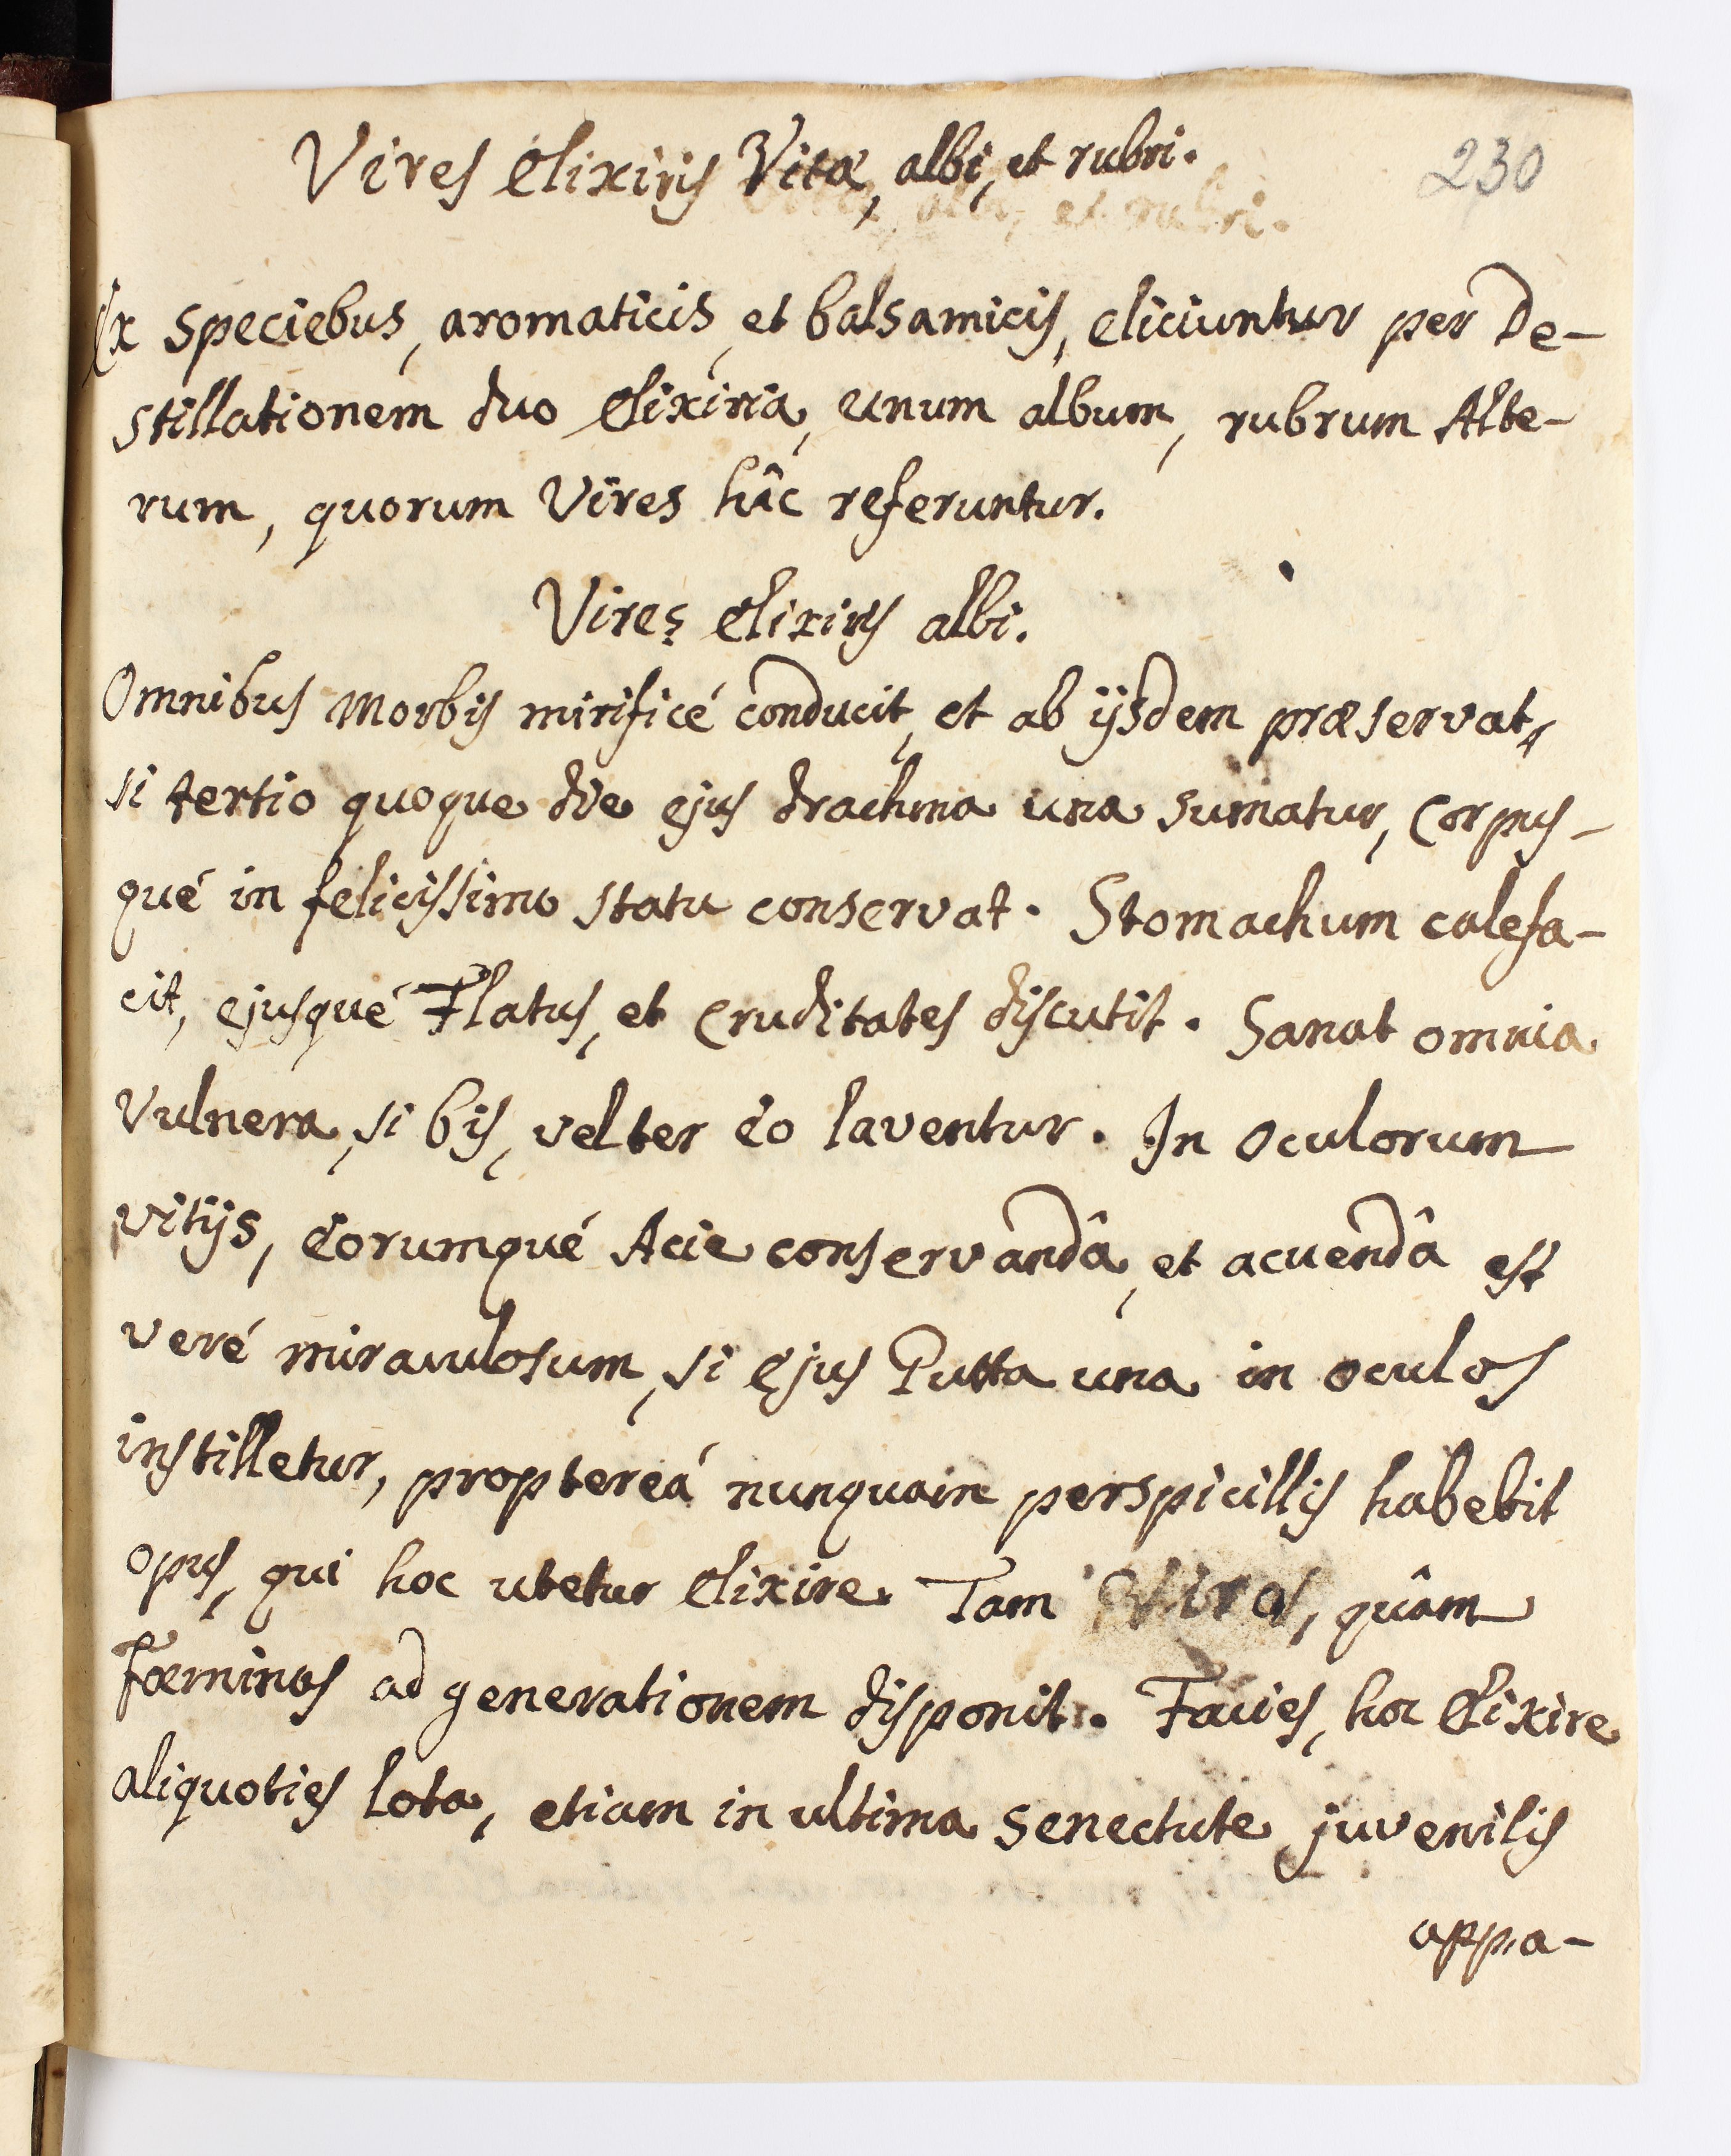 Vires Elixiris Vitæ, albi, et rubri.
230
Ex speciebus, aromaticis, et balsamicis, eliciuntur per De-
stillationem duo Elixiria, unum album, rubrum Alte-
rum, quorum Vires hâc referuntur.
Vires Elixiris albi.
Omnibus Morbis mirificé conducit, et ab ijsdem præservat,
si tertio quoque die ejus drachma una sumatur, Corpus-
qué in felicissimo statu conservat. Stomachum calefa-
cit, ejusqué Flatus, et Cruditates discutit. Sanat omnia
Vulnera, si bis, vel ter Eo laventur. In Oculorum
vitijs, Eorumqué Acie conservandâ, et acuendâ est
veré miraculosum, si Ejus Gutta una in oculos
instilletur, proptereá nunquam perspicillis habebit
opus, qui hoc utetur Elixire. Tam Viros, quâm
Fœminas ad generationem disponit. Facies, hoc Elixire
aliquoties lota, etiam in ultima senectute juvenilis
appa-